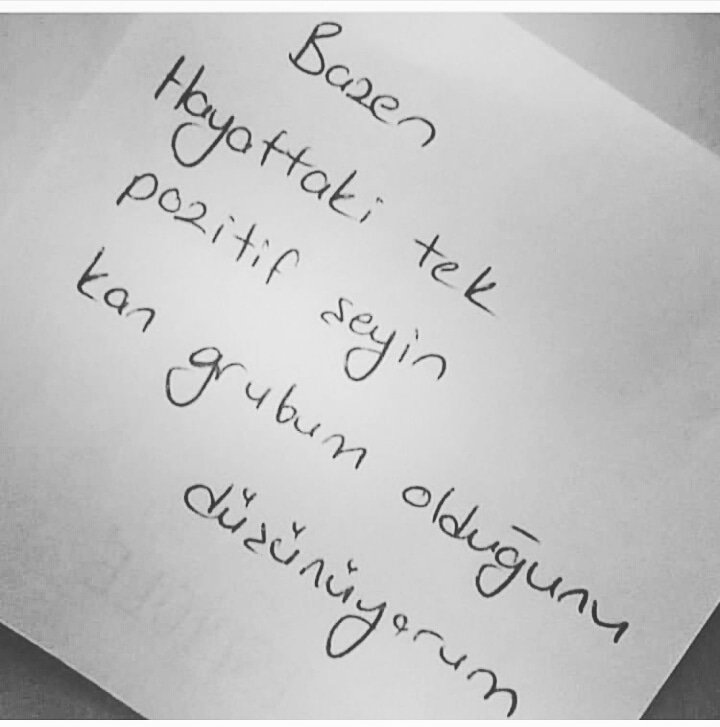 Bazen
Hayattaki tek
pozitif şeyin
kan grubum olduğunu
düşünüyorum